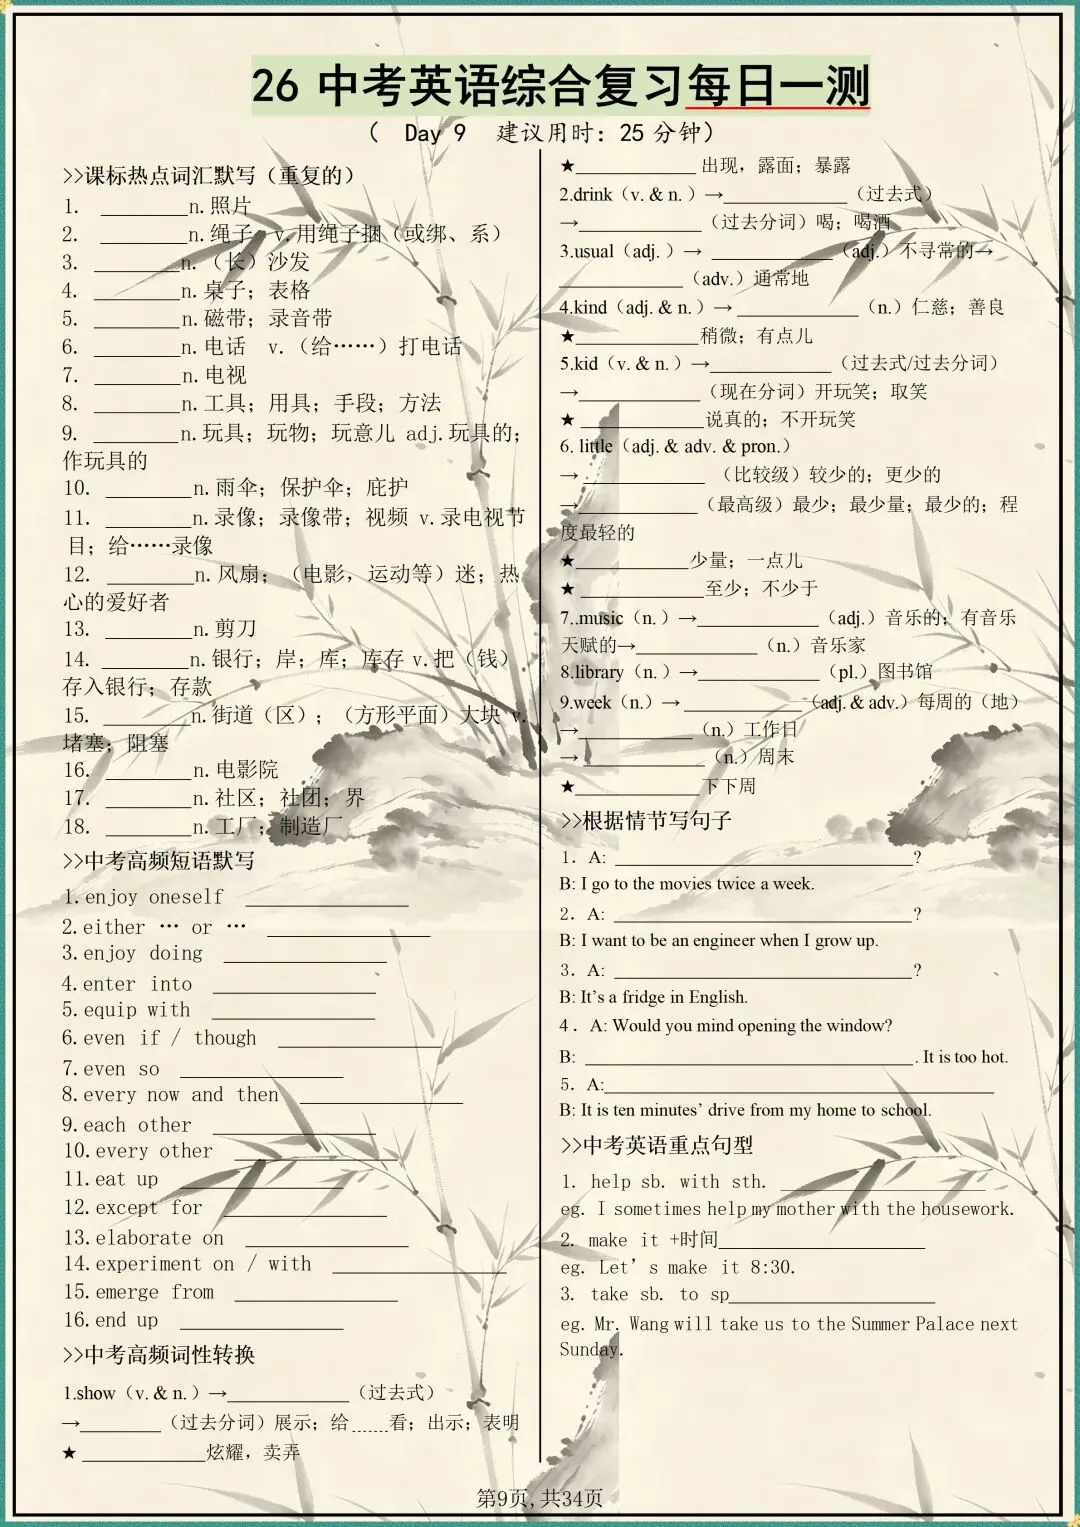 26 中考英语综合复习每日一测
（ Day 9 建议用时：25 分钟）
>>课标热点词汇默写（重复的）
1. ________n.照片
2. ________n.绳子 v.用绳子捆（或绑、系）
3. ________n.（长）沙发
4. ________n.桌子；表格
5. ________n.磁带；录音带
6. ________n.电话 v.（给……）打电话
7. ________n.电视
8. ________n.工具；用具；手段；方法
9. ________n.玩具；玩物；玩意儿 adj.玩具的；
作玩具的
10. ________n.雨伞；保护伞；庇护
11. ________n.录像；录像带；视频 v.录电视节
目；给……录像
12. ________n.风扇；（电影，运动等）迷；热
心的爱好者
13. ________n.剪刀
14. ________n.银行；岸；库；库存 v.把（钱）
存入银行；存款
15. ________n.街道（区）；（方形平面）大块 v.
堵塞；阻塞
16. ________n.电影院
17. ________n.社区；社团；界
18. ________n.工厂；制造厂
>>中考高频短语默写
1.enjoy oneself ________
2.either … or … ________
3.enjoy doing ________
4.enter into ________
5.equip with ________
6.even if / though ________
7.even so ________
8.every now and then ________
9.each other ________
10.every other ________
11.eat up ________
12.except for ________
13.elaborate on ________
14.experiment on / with ________
15.emerge from ________
16.end up ________
>>中考高频词性转换
1.show（v. & n.）→________（过去式）
→________（过去分词）展示；给......看；出示；表明
★ ________炫耀，卖弄
★________ 出现，露面；暴露
2.drink（v. & n.）→________（过去式）
→________（过去分词）喝；喝酒
3.usual（adj.）→ ________（adj.）不寻常的→
________（adv.）通常地
4.kind（adj. & n.）→ ________（n.）仁慈；善良
★________稍微；有点儿
5.kid（v. & n.）→________（过去式/过去分词）
→________（现在分词）开玩笑；取笑
★ ________说真的；不开玩笑
6. little（adj. & adv. & pron.）
→ ________ （比较级）较少的；更少的
→________（最高级）最少；最少量；最少的；程
度最轻的
★________少量；一点儿
★ ________至少；不少于
7..music（n.）→________（adj.）音乐的；有音乐
天赋的→________（n.）音乐家
8.library（n.）→________（pl.）图书馆
9.week（n.）→ ________（adj. & adv.）每周的（地）
→________（n.）工作日
→ ________（n.）周末
★________下下周
>>根据情节写句子
1．A: ________?
B: I go to the movies twice a week.
2．A: ________?
B: I want to be an engineer when I grow up.
3．A: ________?
B: It’s a fridge in English.
4．A: Would you mind opening the window?
B: ________. It is too hot.
5．A:________
B: It is ten minutes’ drive from my home to school.
>>中考英语重点句型
1. help sb. with sth. ________
eg. I sometimes help my mother with the housework.
2. make it +时间________
eg. Let’s make it 8:30.
3. take sb. to sp________
eg. Mr. Wang will take us to the Summer Palace next
Sunday.
第9页,共34页